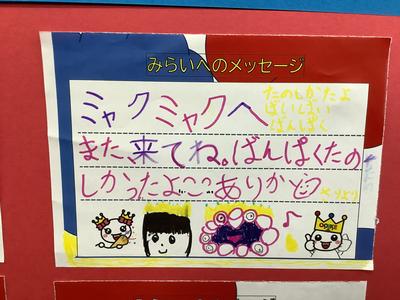 みらいへのメッセージ
ミャクミャクへ
たのしかたよ
ばいばい
ばんぱく
また、来てね。ばんぱくたの
しかったよ〜〜ありがと
より